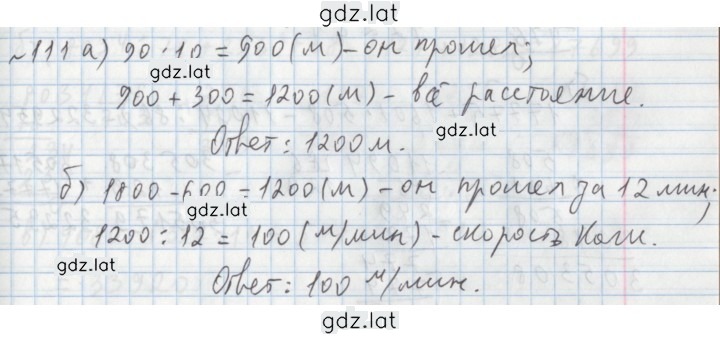 gdz.lat
№111 а) 90 · 10 = 900 (м) – он прошел;
gdz.lat
900 + 300 = 1200 (м) – всё расстояние.
gdz.lat
Ответ: 1200 м.
б) 1800 - 600 = 1200 (м) – он прошел за 12 мин;
gdz.lat
1200 : 12 = 100 (м/мин) – скорость Коли.
gdz.lat
Ответ: 100 м/мин.
gdz.lat